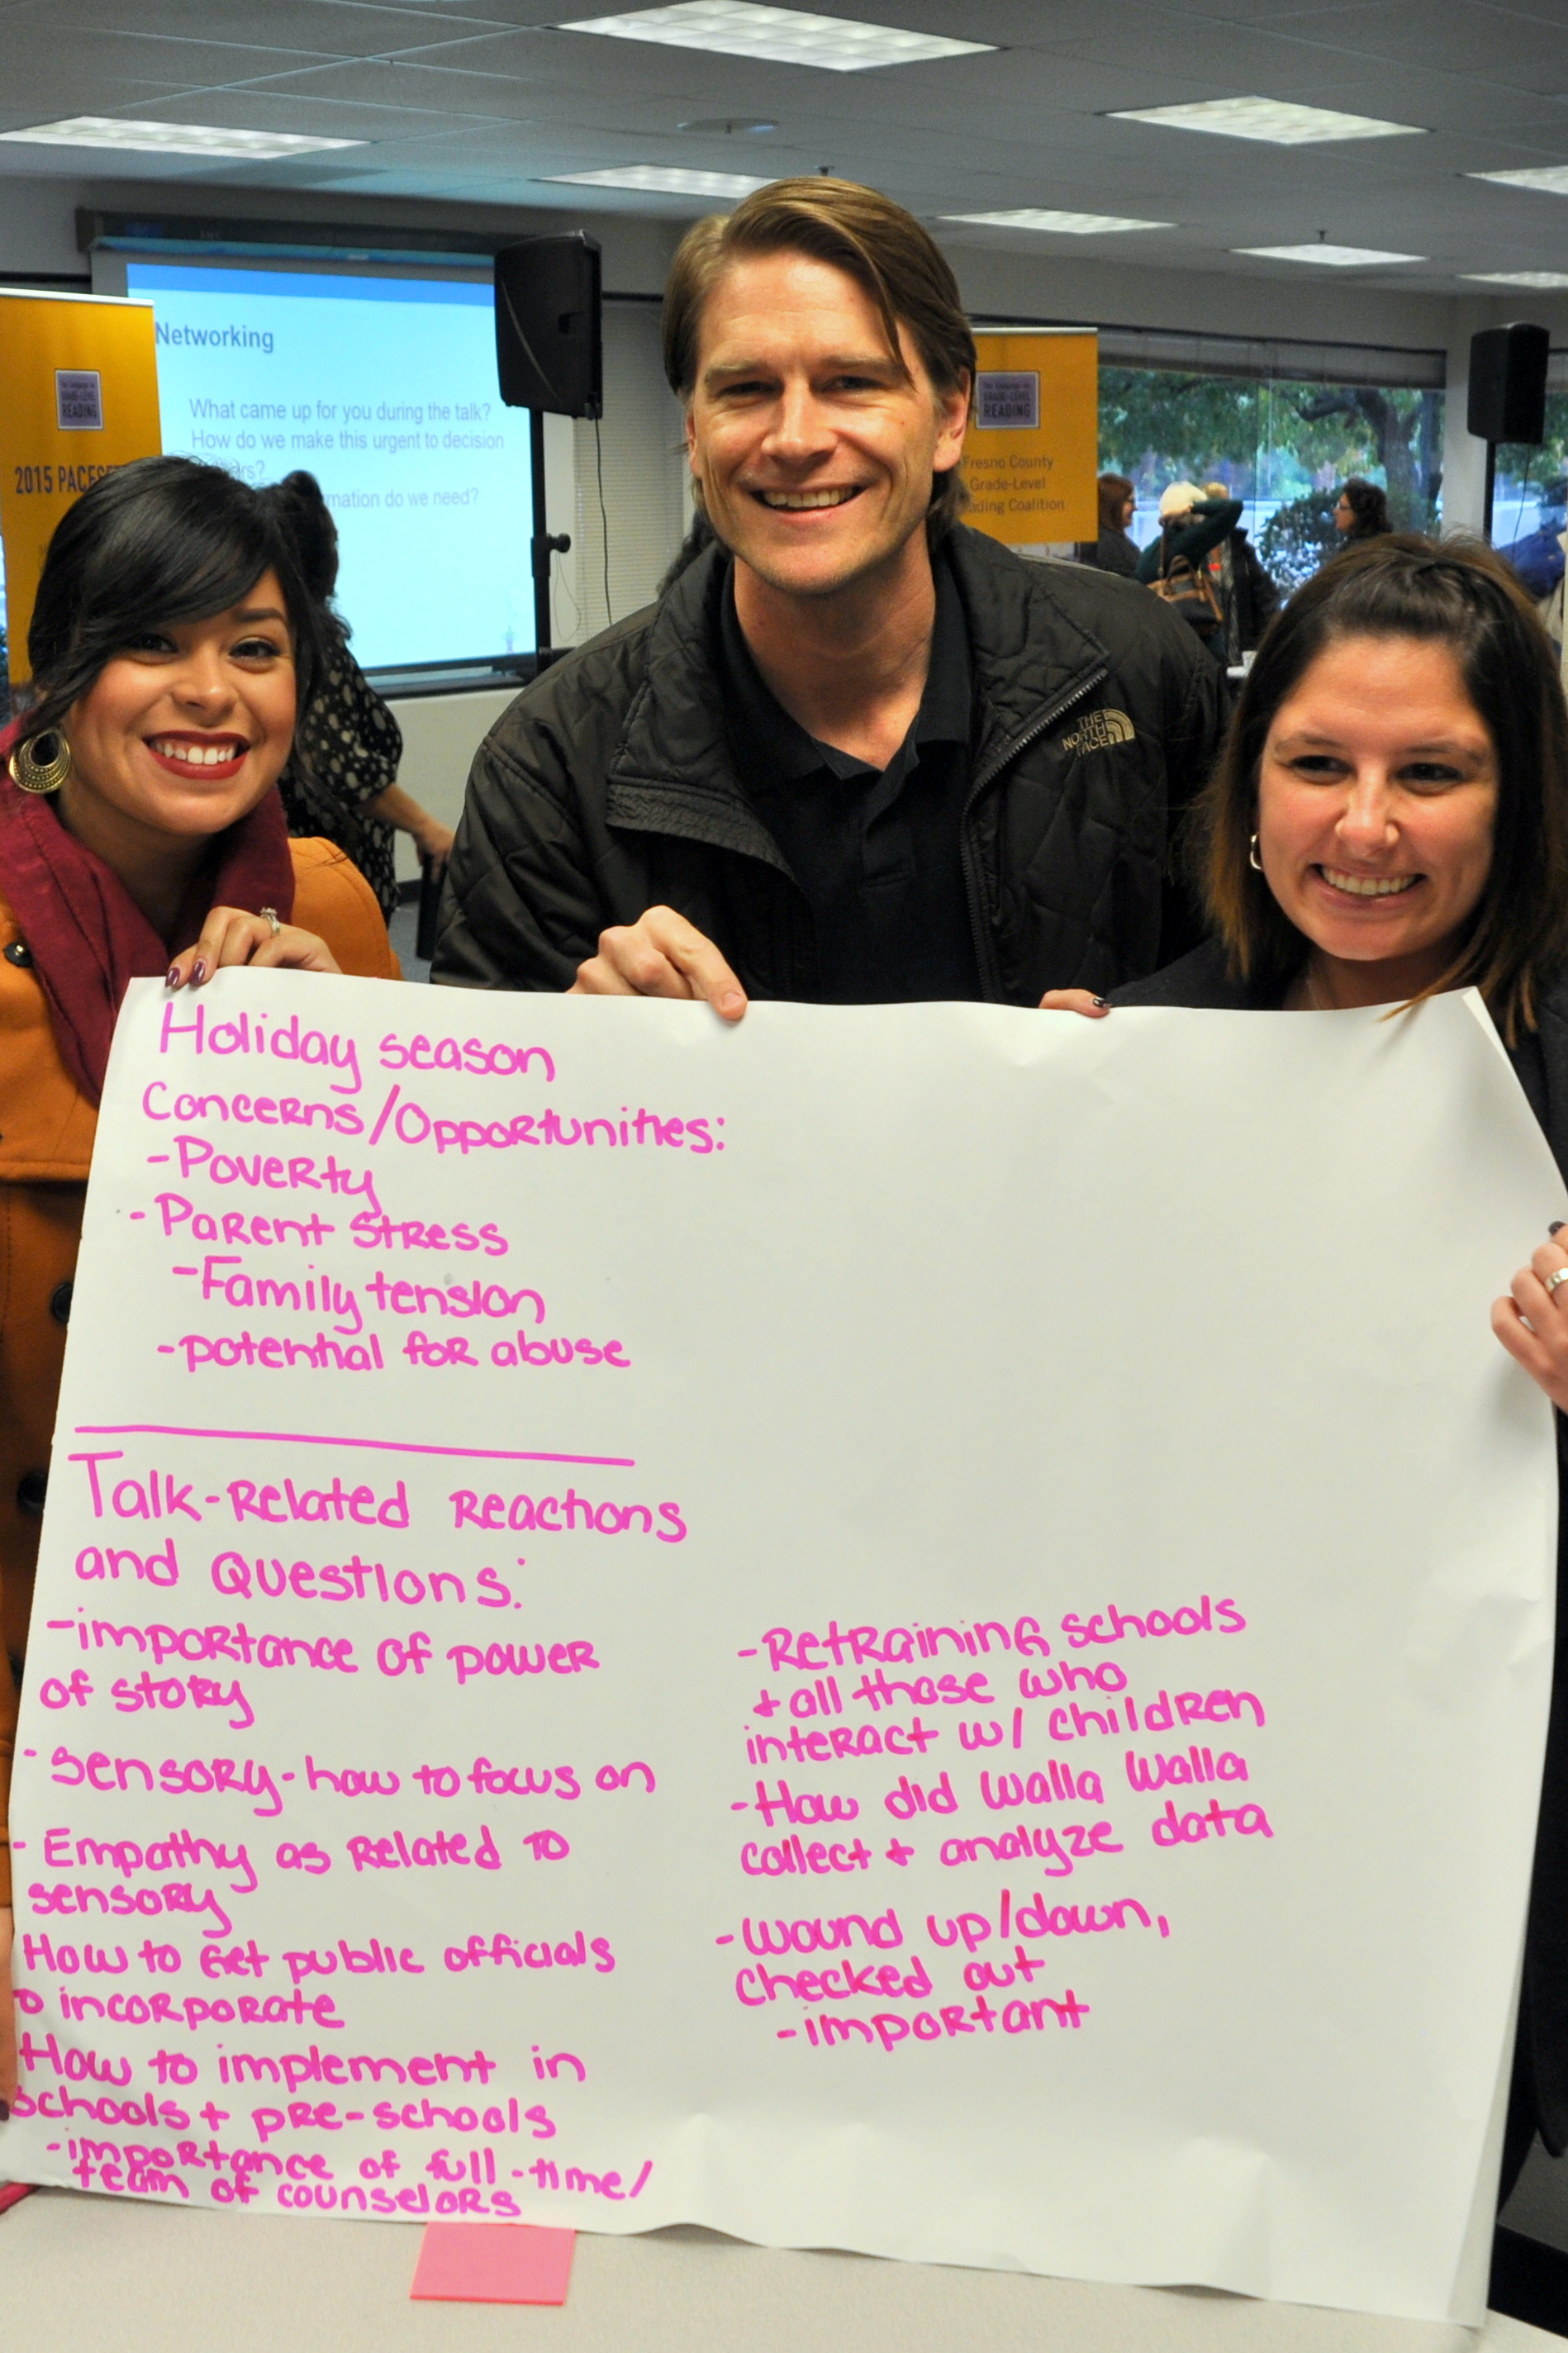 Networking
What came up for you during the talk?
How do we make this urgent to decision
do we need?
The Campaign for
GRADE-LEVEL
READING
2015
GRADE-LEVEL
READING
Fresno County
Grade-Level
Coalition
THE
NORTH
FACE
Holiday season
Concerns/Opportunities:
-Poverty
-Parent stress
-Family tension
-potential for abuse
Talk-Related Reactions
and Questions:
-importance of power
of story
-sensory-how to focus on
-Empathy as related to
sensory
How to get public officials
to incorporate
How to implement in
schools + pre-schools
-importance of full-time/
team of counselors
-Retraining schools
+ all those who
interact w/ children
-How did Walla Walla
collect + analyze data
-wound up/down,
checked out
-important